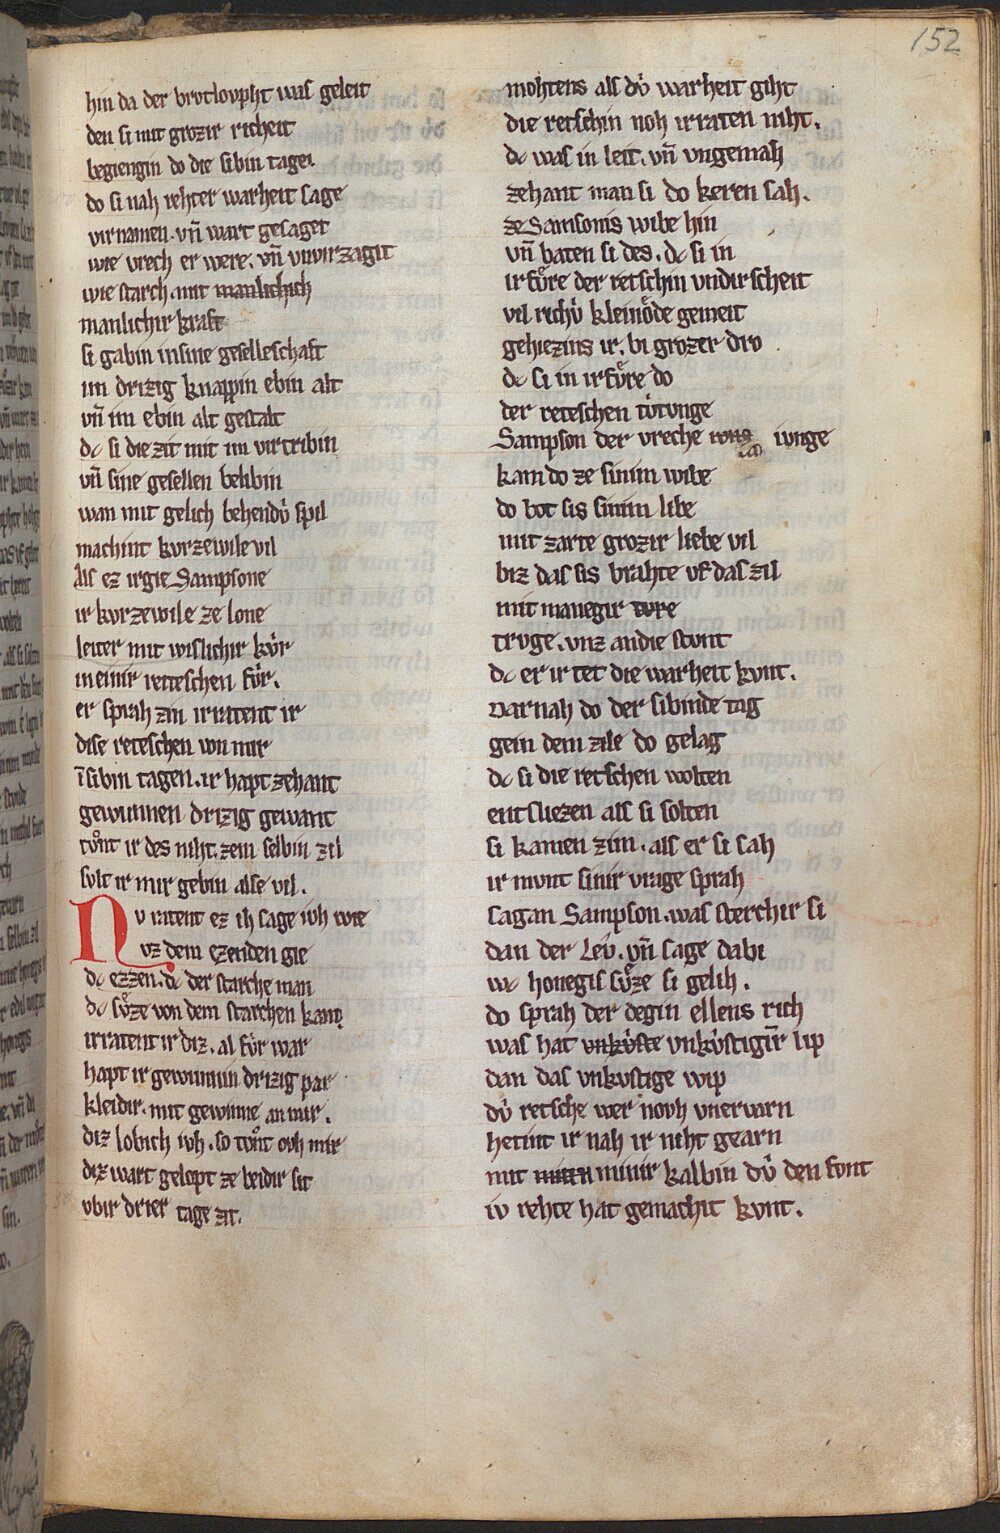 152
hin da der brvtlovpht was geleit
den si mit grozir richeit
begiengin do die sibin tagei
do si nah rehter warheit sage
virnamen. vn̄ wart gesaget
wie vrech er were. vn̄ vnvirzagit
wie starch. mit manlichich
manlichir kraft
si gabin insine geselleschaft
im drizig knappin ebin alt
vn̄ im ebin alt gestalt
dc si die zit mit im virtribin
vn̄ sine gesellen belibin
wan mit gelich behendv̊ spil
machint kvrzewile vil
Als ez irgie Sampsone
ir kvrzewile ze lone
leiter mit wislichir kv̊r
in einir retteschen fv̊r.
er sprah zin irratent ir
dise reteschen von mir
ī sibin tagen. ir hapt zehant
gewunnen drizig gewant
tv̊nt ir des niht. zem selbin zil
svlt ir mir gebin alse vil.
Nv ratent ez ih sage ivh wie
vz dem ezenden gie
dc ezzen. dc der starche man
dc sv̊ze von dem starchen kam
irratent ir diz. al fv̊r war
hapt ir gewunnin drizig par
kleidir. mit gewinne an mir.
diz lobich ivh. so tv̊nt ovh mir
diz wart gelopt ze beidir sit
vbir drier tage zit.
mohtens als dv̊ warheit giht
die retschin noh irraten niht.
dc was in leit. vn̄ vngemah
zehant man si do keren sah.
ze Samsonis wibe hin
vn̄ baten si des. dc si in
irfv̊re der retschin vndirscheit
vil richv̊ kleinode gemeit
gehiezins ir. bi grozer dro
dc si in irfv̊re do
der reteschen tv̊tvnge
Sampson der vreche ivnge
kam do ze sinim wibe
do bot sis sinim libe
mit zarte grozir liebe vil
biz das sis brahte vf das zil
mit manegir tvre
trvge. vnz an die stvnt
dc er ir tet die warheit kvnt.
Darnah do der sibinde tag
gein dem zile do gelag
dc si die retschen wolten
entsliezen als si solten
si kamen zim. als er si sah
ir mvnt sinir vrage sprah
sagan Sampson. was sterchir si
dan der Lev̊. vn̄ sage dabi
wc honegis sv̊ze si gelih.
do sprah der degin ellens rich
was hat vnkv̊ste vnkv̊stigir lip
dan das vnkvstige wip
dv̊ retsche wer novh vnervarn
hetint ir nah ir niht gearn
mit minen minir kalbin dv̊ den font
iv rehte hat gemachit kvnt.